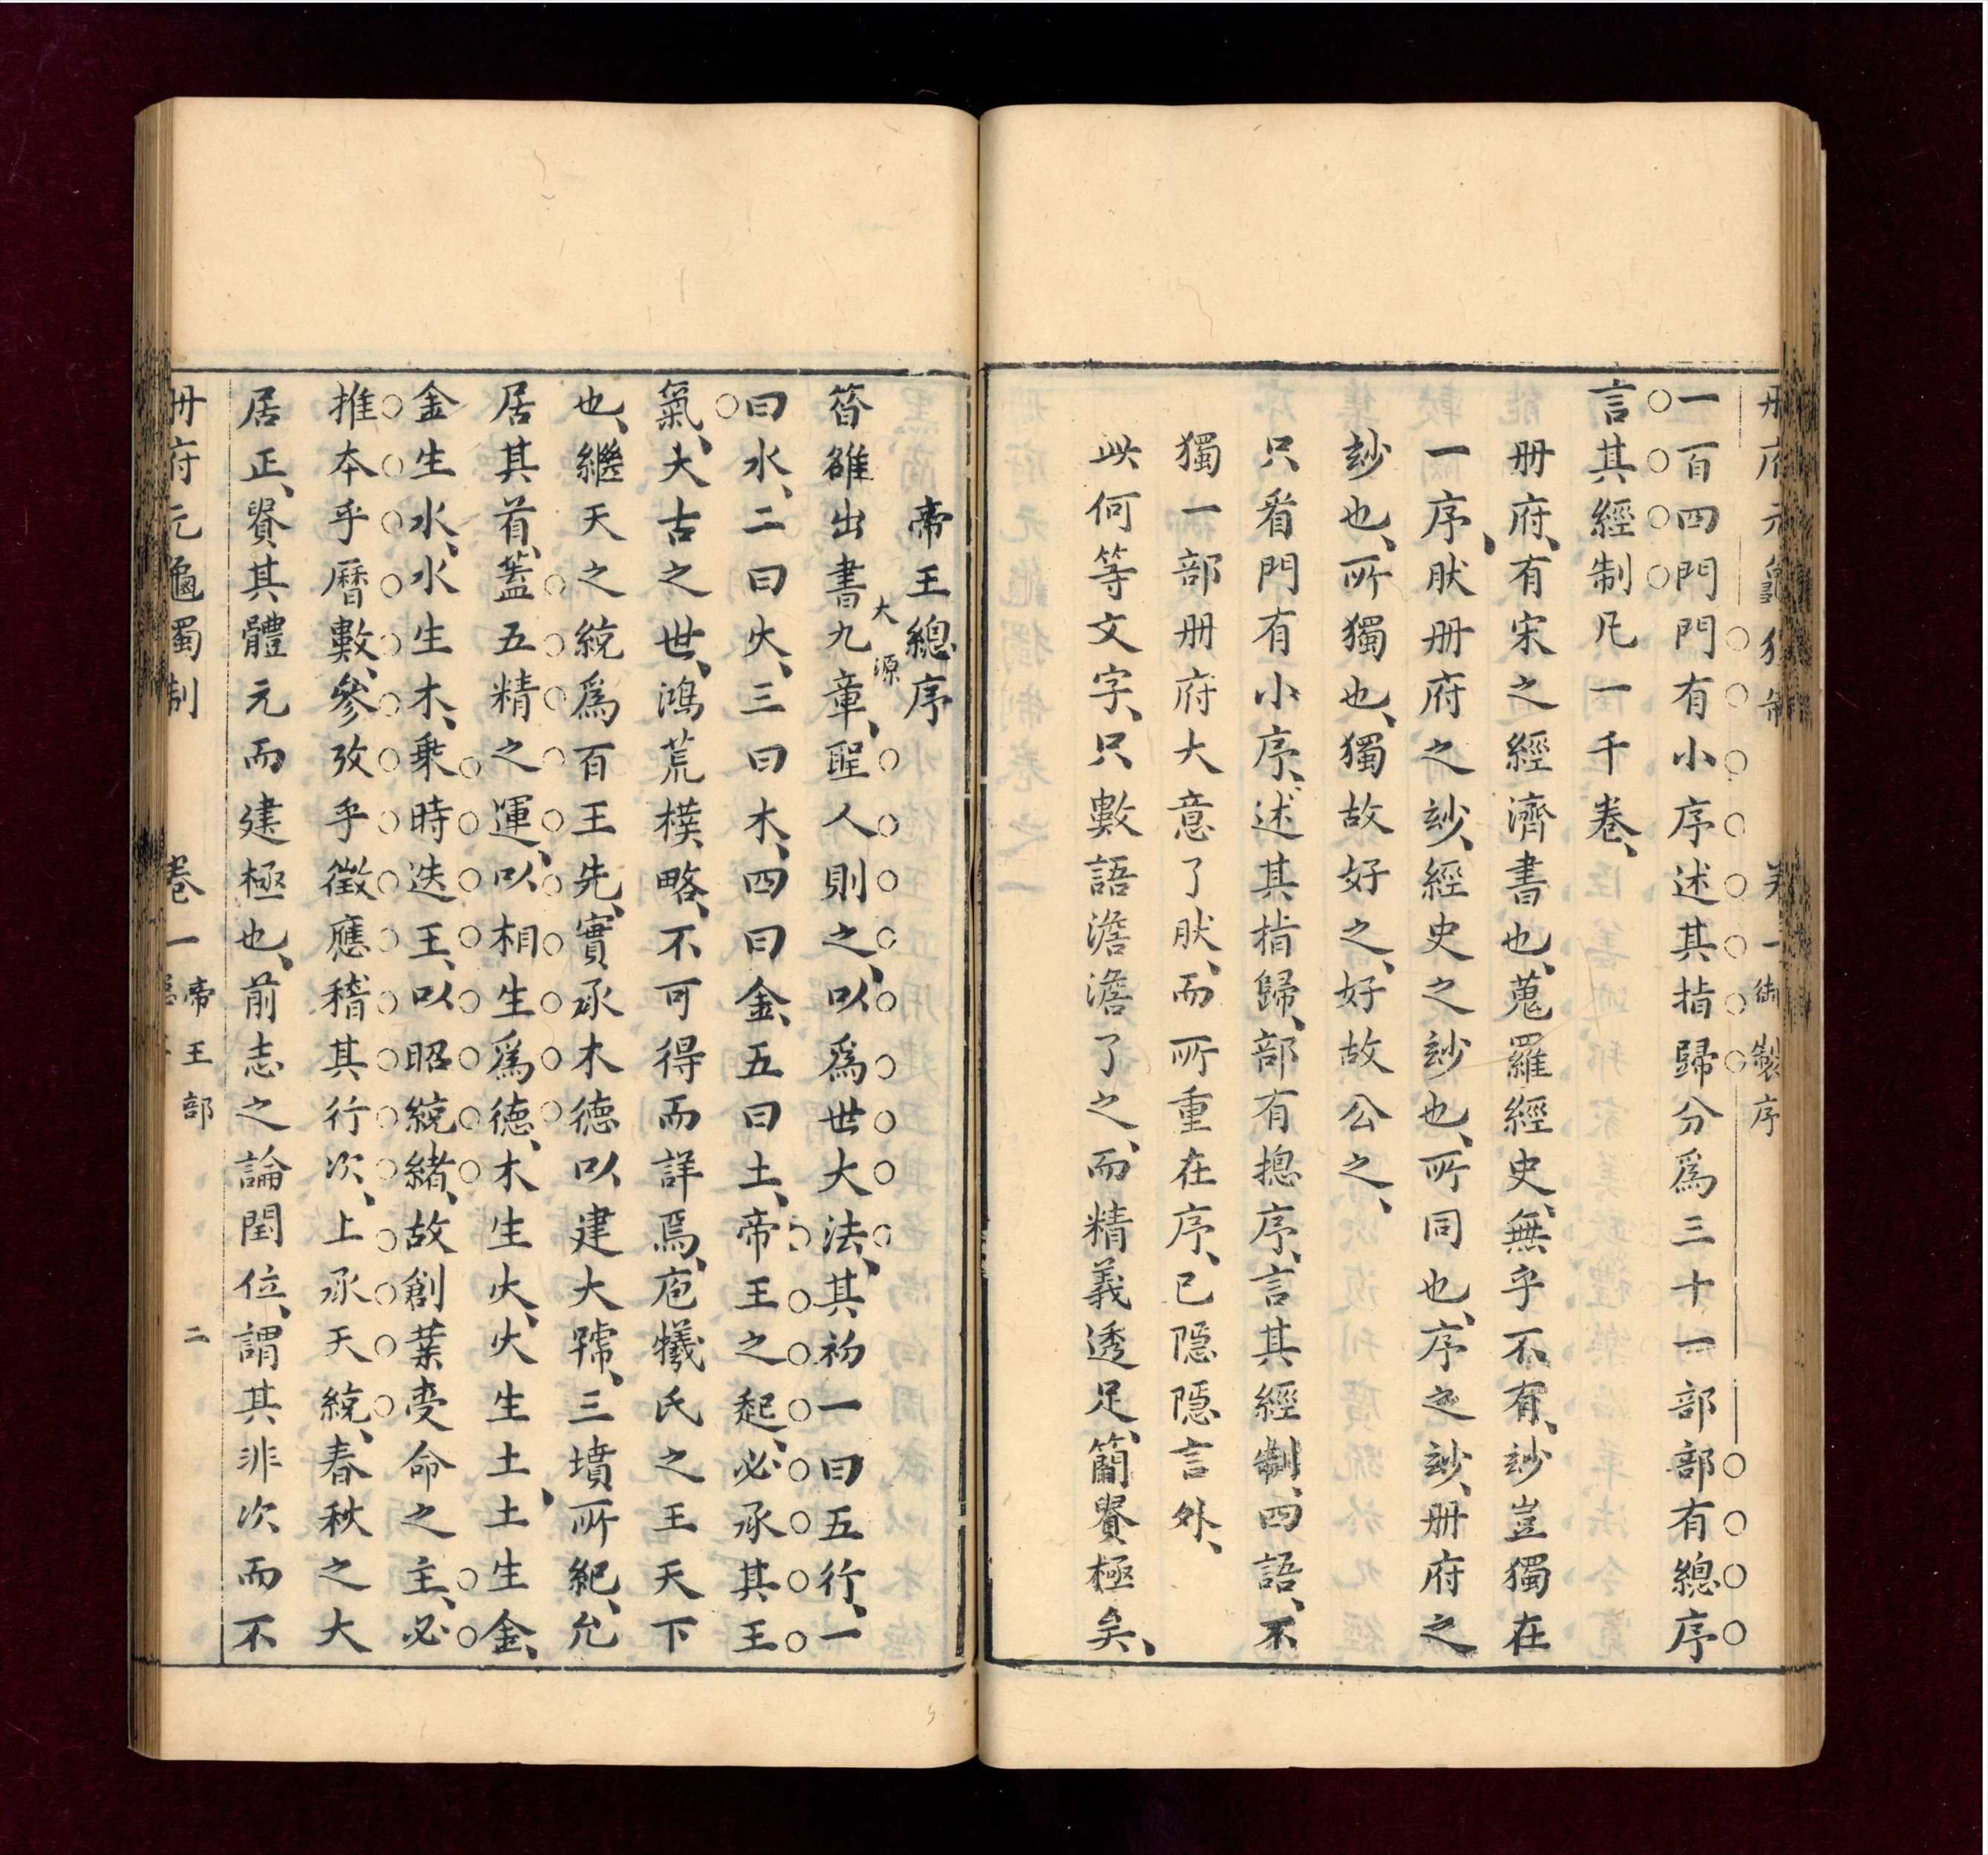 册府元龜獨制 卷一 御製序
一百四門門有小序述其指歸分爲三十一部部有總序
言其經制凡一千卷、
册府、有宋之經濟書也、蒐羅經史、無乎不有、玅豈獨在
一序、肰册府之玅、經史之玅也、所同也、序之玅、册府之
玅也、所獨也、獨故好之、好故公之、
只看門有小序、述其指歸、部有摠序、言其經制、四語、不
獨一部册府大意了肰、而所重在序、已隱隱言外、
此何等文字、只數語澹澹了之、而精義透足、簡貴極矣、
帝王總序
昝雒出書九章、聖人則之、以爲世大法、其初一曰五行、一
大源
曰水、二曰火、三曰木、四曰金、五曰土、帝王之起、必承其王
氣、大古之世、鴻荒樸略、不可得而詳焉、庖犧氏之王天下
也、繼天之統爲百王先、實承木德以建大號、三墳所紀、允
居其首、蓋五精之運、以相生爲德、木生火、火生土、土生金、
金生水、水生木、乗時迭王、以昭統緒、故創業受命之主、必
推本乎曆數、參攷乎徵應稽其行次、上承天統、春秋之大
居正、貴其體元而建極也、前志之論閏位、謂其非次而不
册府元龜獨制 卷一 帝王部 二